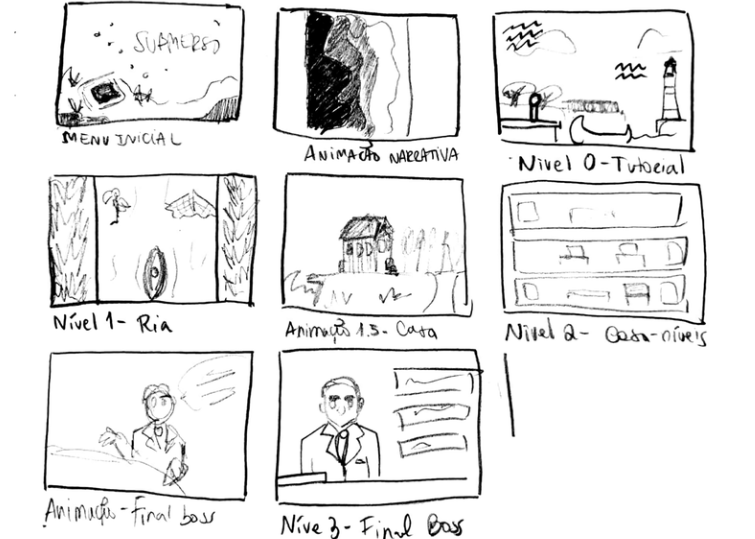 SUBMERSO
MENU INICIAL
ANIMAÇÃO NARRATIVA
Nível 0-Tutorial
Nível 1- Ria
Animação 1.5- Casa
Nível 2- Casa-níveis
Animação-Final boss
Níve 3-Final Boss